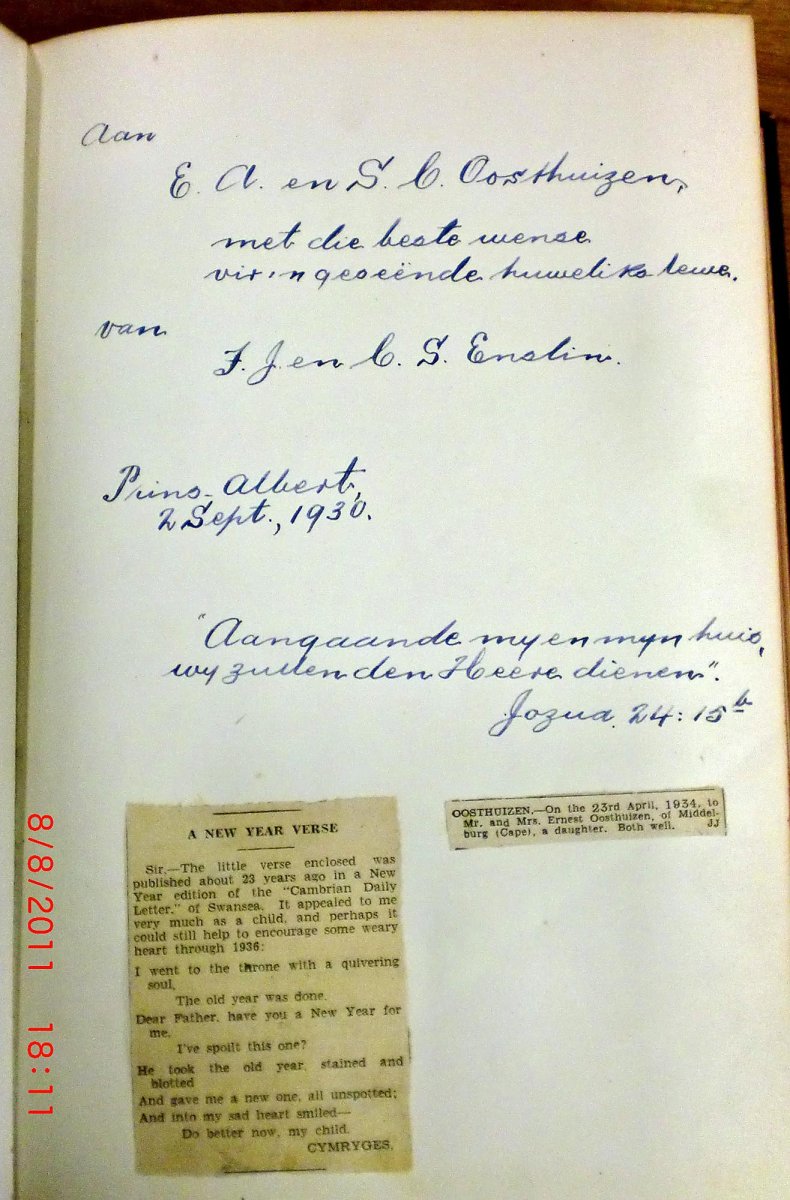 Aan
E. A. en S. C. Oosthuizen,
met die beste wense
vir 'n geseënde huweliks lewe.
van
F. J. en C. S. Enslin.
Prins-Albert,
2 Sept., 1930.
"Aangaande my en myn huis,
wy zullen den Heere dienen".
Jozua 24:15b
A NEW YEAR VERSE
Sir,—The little verse enclosed was
published about 23 years ago in a New
Year edition of the "Cambrian Daily
Letter," of Swansea. It appealed to me
very much as a child, and perhaps it
could still help to encourage some weary
heart through 1936:
I went to the throne with a quivering
soul,
The old year was done.
Dear Father, have you a New Year for
me,
I've spoilt this one?
He took the old year, stained and
blotted
And gave me a new one, all unspotted;
And into my sad heart smiled—
Do better now, my child.
CYMRYGES.
OOSTHUIZEN.—On the 23rd April, 1934, to
Mr. and Mrs. Ernest Oosthuizen, of Middel-
burg (Cape), a daughter. Both well. JJ
8/8/2011 18:11